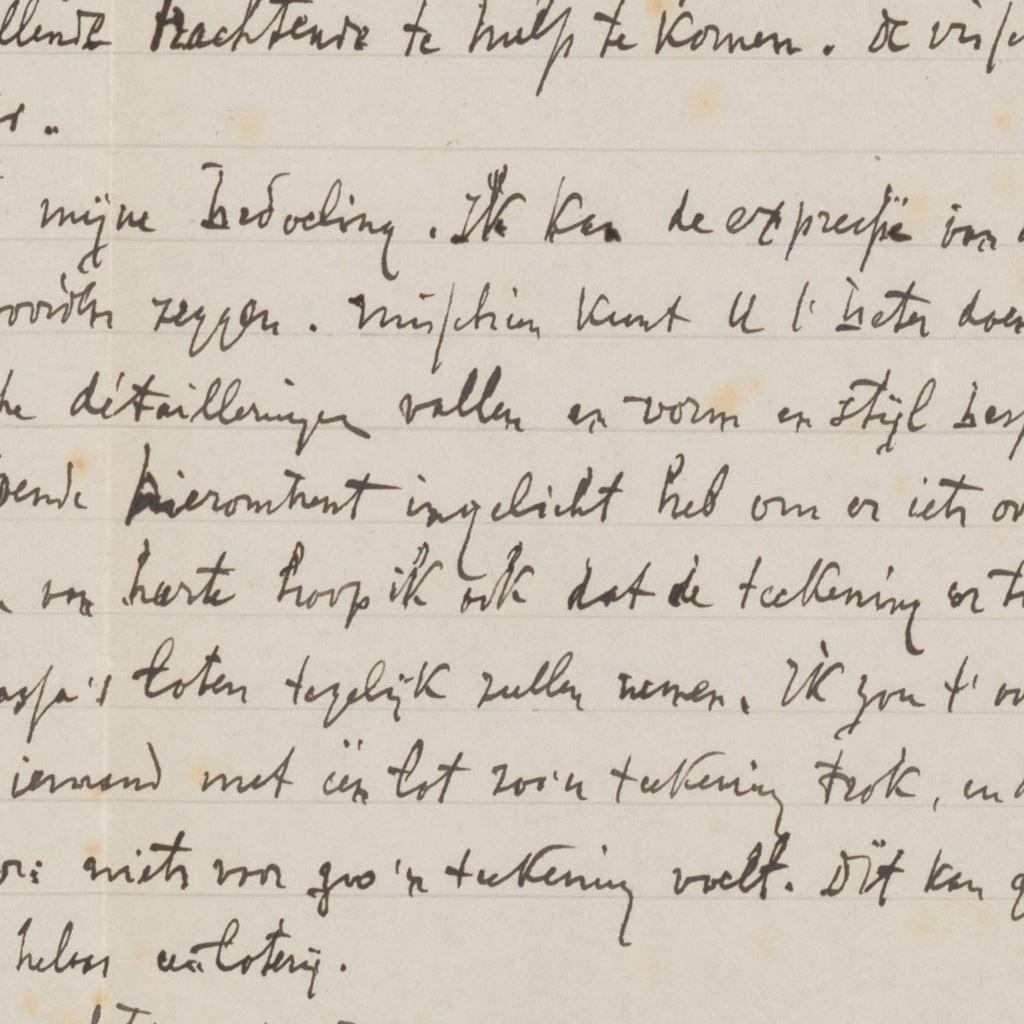 trachtende te hulp te komen. De
mijne Bedoeling. Ik kan de expressie van
zeggen. misschien kunt U 't beter doen
détailleringen vallen en vorm en stijl
hieromtrent ingelicht heb om er iets
van harte hoop ik ook dat de teekening er
loten tegelijk zullen nemen. Ik zou 't
iemand met één lot zoo'n teekening trok, en
niets voor zoo'n teekening voelt. Dit kan
helaas een loterij.